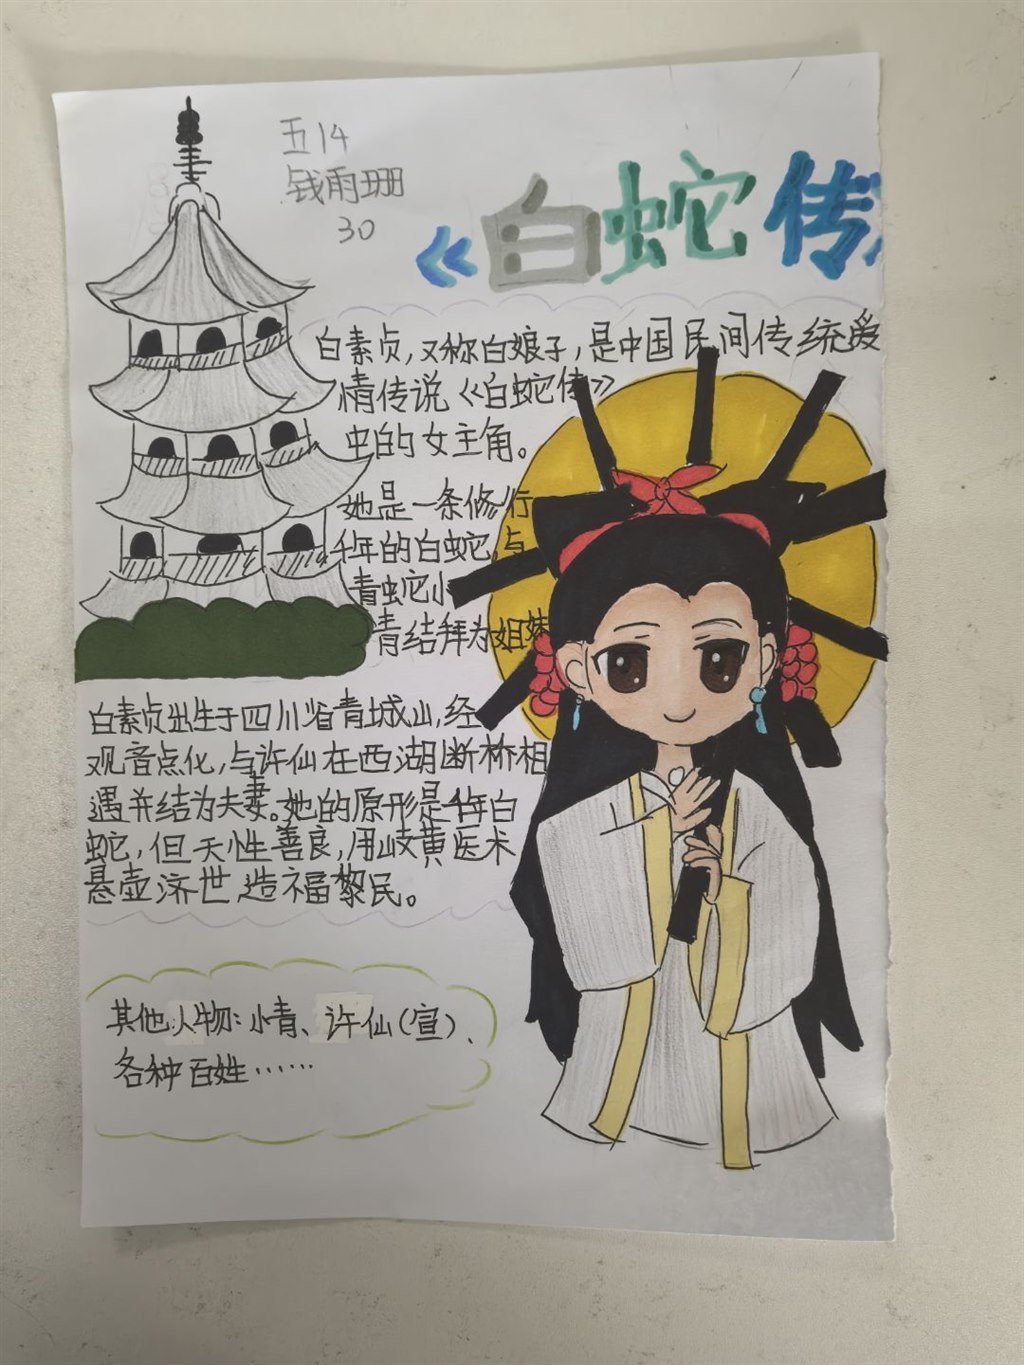 五14
钱雨珊
30
《白蛇传
白素贞,又称白娘子,是中国民间传统爱
情传说《白蛇传》
虫的女主角。
她是一条修行
千年的白蛇,与
青蛇小
青结拜为姐妹
白素贞出生于四川省青城山,经
观音点化,与许仙在西湖断桥相
遇并结为夫妻。她的原形是千年白
蛇,但天性善良,用岐黄医术
悬壶济世造福黎民。
其他人物:小青、许仙(宣)、
各种百姓……